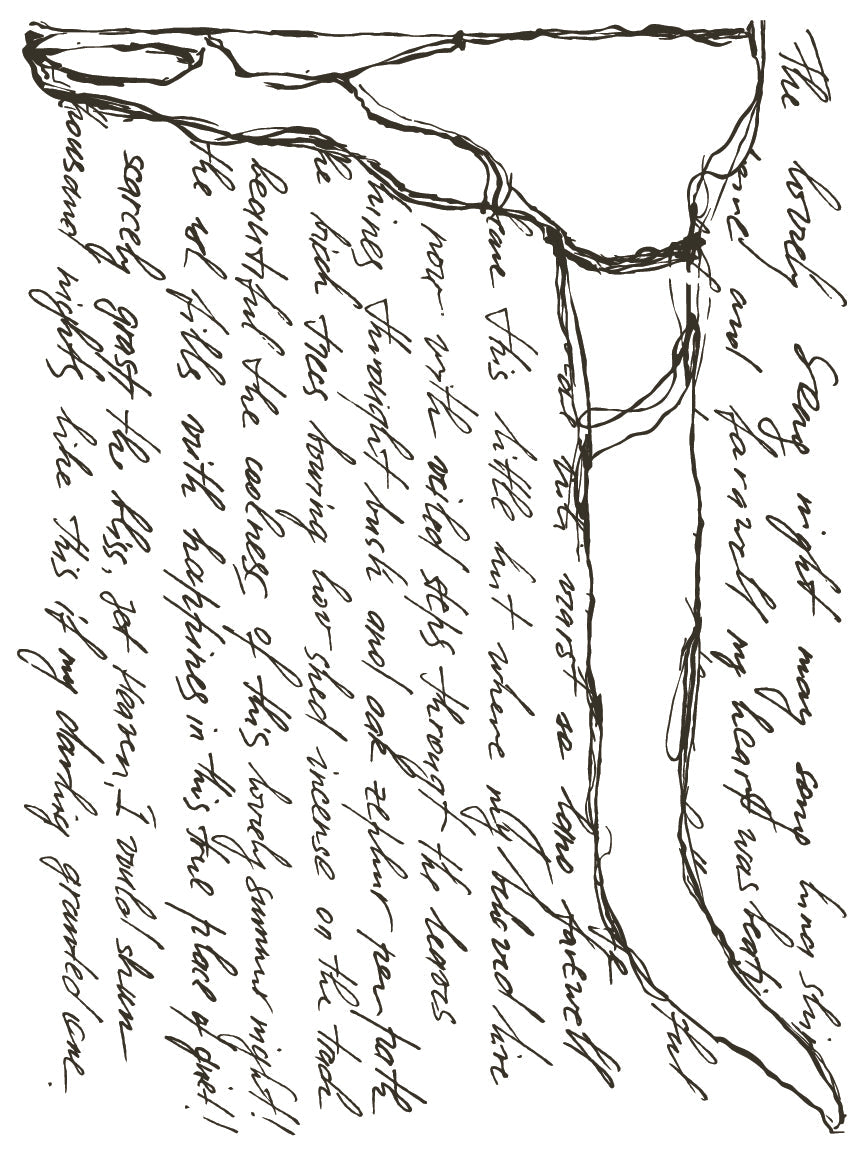 The lovely song night may song
and farewell my heart was beating
wait so long farewell
this little hut where my beloved live
now with veiled steps through the leaves
things throught bush and oak zephir per path
the birch trees bowing low shed incense on the track
beautiful the coolness of this lovely summer night!
the sol fills with happines in this true place of quiet!
scarcely grasp the bliss, yet Heaven, I would shun
thousand nights like this if my darling granted one.